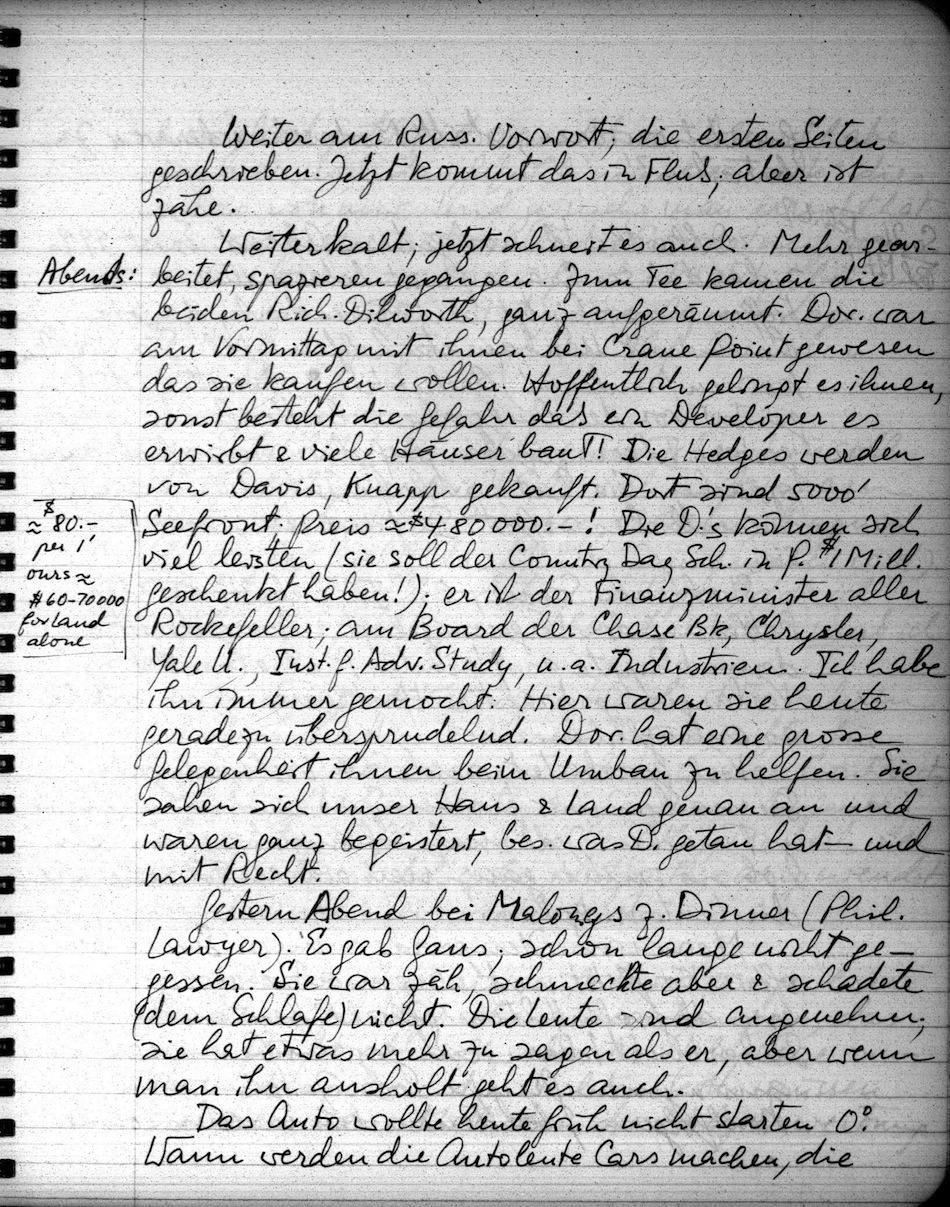 Weiter am Russ. Vorwort, die ersten Seiten
geschrieben. Jetzt kommt das in Fluß, aber ist
zähe.
Weiter kalt; jetzt schneit es auch. Mehr gear-
Abends:
beitet, spazieren gegangen. Zum Tee kamen die
beiden Rich. Dilworth, ganz aufgeräumt. Dor. war
am Vormittag mit ihnen bei Crane Point gewesen
das sie kaufen wollen. Hoffentlich gelingt es ihnen,
sonst besteht die Gefahr daß ein Developer es
erwirbt & viele Häuser baut! Die Hedges werden
von Davis, Knapp gekauft. Dort sind 5000'
Seefront. Preis ≈ $480000.-! Die D.'s können sich
viel leisten (sie soll der Country Day Sch. in P. $1 Mill.
geschenkt haben!); er ist der Finanzminister aller
Rockefeller; am Board der Chase Bk, Chrysler,
Yale U., Inst. f. Adv. Study, u.a. Industrien. Ich habe
ihn immer gemocht. Hier waren sie heute
geradezu übersprudelnd. Dor. hat eine grosse
Gelegenheit ihnen beim Umbau zu helfen. Sie
sahen sich unser Haus & Land genau an und
waren ganz begeistert, bes. was D. getan hat – und
mit Recht.
$
≈ 80.-
per 1'
ours ≈
$60-70000
for land
alone
Gestern Abend bei Maloneys z. Dinner (Phil.
Lawyer). Es gab Gans; schon lange nicht ge-
gessen. Sie war zäh, schmeckte aber & schadete
(dem Schlafe) nicht. Die Leute sind angenehm;
sie hat etwas mehr zu sagen als er, aber wenn
man ihn ausholt geht es auch.
Das Auto wollte heute früh nicht starten 0°.
Wann werden die Autoleute Cars machen, die